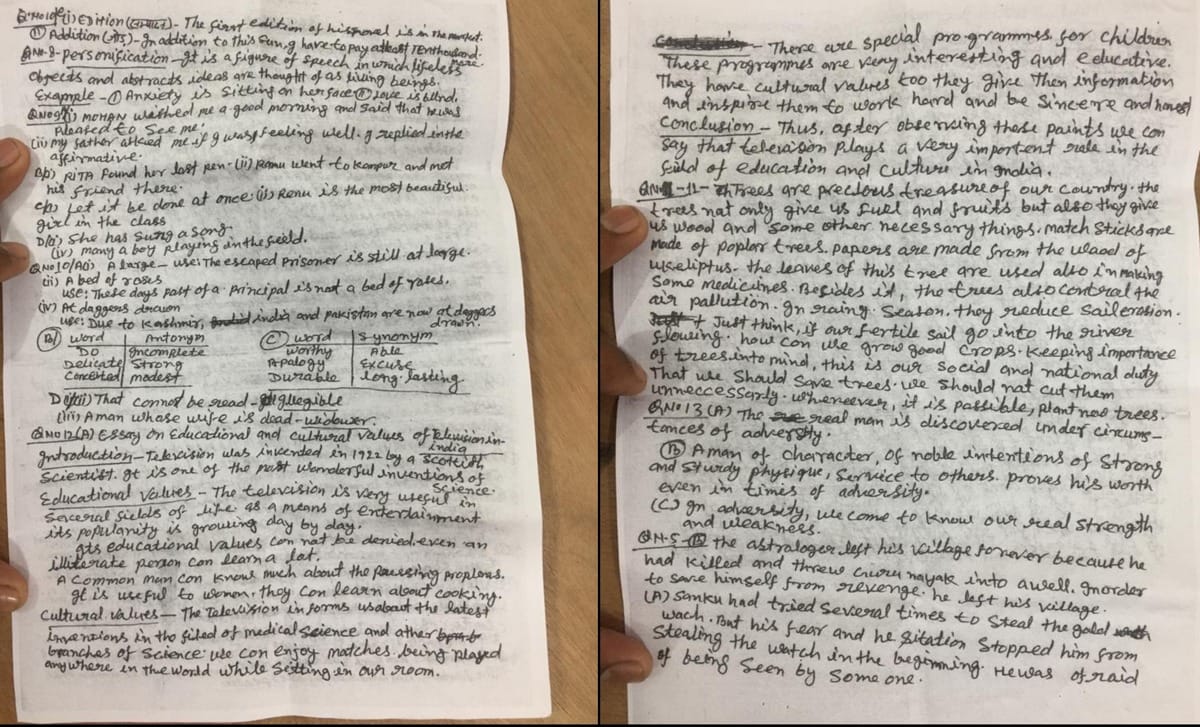 (i) Edition - The first edition of his novel is in the market.
(ii) Addition - In addition to this Sun, g have to pay atleast Tenthousand.
QNo-8- personification - It is a figure of speech in which lifeless
Objects and abstracts ideas are thought of as living beings.
Example - (i) Anxiety is Sitting on her face (ii) Love is blind.
(i) MOHAN wished me a good morning and Said that he was
Pleased to See me.
(ii) my father asked me if g was feeling well. g replied in the
affirmative.
(i) RITA found her lost pen. (ii) Ramu went to Kanpur and met
his friend there.
Let it be done at once (ii) Renu is the most beautiful
girl in the class
She has Sung a Song.
(iv) many a boy playing in the feeld.
QNo 10/A(i) A large - use: The escaped Prisoner is still at large.
(ii) A bed of roses
use: These days post of a principal is not a bed of roses.
(iv) At daggers drawn
use: Due to Kashmir, india and pakistan are now at daggers
drawn.
(B) word Antonym (C) word Synonym
Do Incomplete worthy Able
Delicate Strong Apalogy Excuse
Conceited modest Durable long-lasting
That connot be read - Illegible
(iii) A man whose wife is dead - widower.
QNo 12(A) Essay on Educational and cultural values of Television in
india
Introduction - Television was invented in 1922 by a Scottish
Scientist. It is one of the most wonderful inventions of
Science.
Educational values - The television is very useful in
several fields of life as a means of entertainment
its popularity is growing day by day.
Its educational values con not be denied. even an
illiterate person can learn a lot.
A common man con know much about the
It is useful to women. they con learn about cooking.
Cultural values - The Television informs us about the latest
inventions in the filed of medical Science and other
branches of Science. we con enjoy matches being played
anywhere in the world while Setting in our room.
- There are special programmes for children
These programmes are very interesting and educative.
They have cultural values too they give Then information
and inspire them to work hard and be Sincere and honest
Conclusion - Thus, after observing these paints we con
Say that television plays a very importent role in the
feild of education and Culture in india.
QN-11- Trees are precious treasure of our country. the
trees not only give us fuel and fruits but also they give
us wood and some other necessary things. match Sticks are
made of poplar trees. papers are made from the wood of
ukeliptus. the leaves of this tree are used also in making
Some medicines. Besides it, the trees also control the
air pallution. In rainy Season, they reduce Soil erotion.
Just think, if our fertile soil go into the river
flowing. how con we grow good crops. Keeping importance
of trees into mind, this is our social and national duty
That we Should Save trees. we should not cut them
unneccessarly. whenever, it is possible, plant new trees.
QNo 13 (A) The real man is discovered under circums-
tances of adversity.
(B) A man of character, of noble intentions of Strong
and Sturdy physique, Service to others. proves his worth
even in times of adversity.
(C) In adversity, we come to know our real Strength
and weakness.
QN.5 - (B) the astrologer left his village forever because he
had killed and threw Guru nayak into a well. Inorder
to save himself from revenge. he left his village.
(A) Sanku had tried Several times to Steal the gold
wach. But his fear and he Sitation Stopped him from
Stealing the watch in the beginning. He was of raid
of being Seen by Some one.